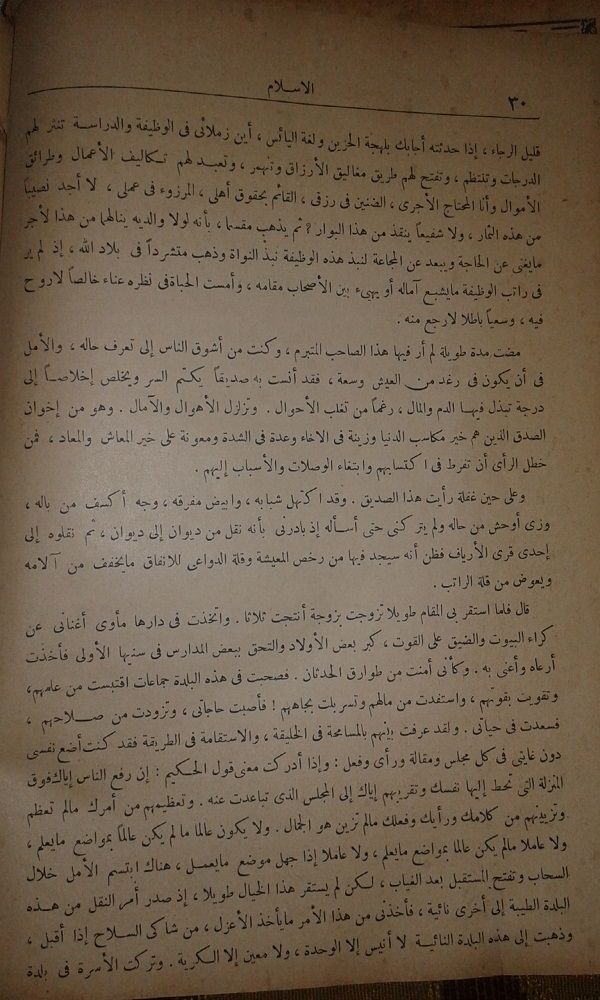 الاسلام
٣٠
قليل الرجاء ، إذا حدثته أجابك بلهجة الحزين ولغة اليائس ، أين زملائى فى الوظيفة والدراسة تنثر لهم
الدرجات وتنتظم ، وتفتح لهم طريق مغاليق الأرزاق وتنهمر ، وتعبد لهم تكاليف الأعمال وطرائق
الأموال وأنا المحتاج الأجرى ، الضنين فى رزقى ، القائم بحقوق أهلى ، المرزوء فى عملى ، لا أجد نصيباً
من هذه الثمار ، ولا شفيعاً ينقذ من هذا البوار ؟ ثم يذهب مقسما ، بأنه لولا والديه ينالهما من هذا لأجر
مايغنى عن الحاجة ويبعد عن المجاعة لنبذ هذه الوظيفة نبذ النواة وذهب متشرداً فى بلاد الله ، إذ لم ير
فى راتب الوظيفة مايشبع آماله أو يهىء بين الأصحاب مقامه ، وأمست الحياة فى نظره عناء خالصاً لاروح
فيه ، وسعياً باطلا لارجع منه .
مضت مدة طويلة لم أر فيها هذا الصاحب المتبرم ، وكنت من أشوق الناس إلى تعرف حاله ، والأمل
فى أن يكون فى رغد من العيش وسعة ، فقد أنست به صديقاً يكتم السر ويخلص إخلاصاً إلى
درجة تبذل فيها الدم والمال ، رغماً من تغلب الأحوال . وتزلزل الأهوال والآمال . وهو من إخوان
الصدق الذين هم خير مكاسب الدنيا وزينة فى الاخاء وعدة فى الشدة ومعونة على خير المعاش والمعاد ، فمن
خطل الرأى أن تفرط فى اكتسابهم وابتغاء الوصلات والأسباب إليهم .
وعلى حين غفلة رأيت هذا الصديق . وقد اكتهل شبابه ، وابيض مفرقه ، وجه أكسف من باله ،
وزى أوحش من حاله ولم يتركنى حتى أسأله إذ بادرنى بأنه نقل من ديوان إلى ديوان ، ثم نقلوه إلى
إحدى قرى الأرياف فظن أنه سيجد فيها من رخص المعيشة وقلة الدواعى للانفاق مايخفف من آلامه
ويعوض من قلة الراتب .
قال فلما استقر بى المقام طويلا تزوجت بزوجة أنتجت ثلاثا . واتخذت فى دارها مأوى أغنانى عن
كراء البيوت والضيق على القوت ، كبر بعض الأولاد والتحق ببعض المدارس فى سنيها الأولى فأخذت
أرعاه وأعنى به . وكأنى أمنت من طوارق الحدثان . فصحبت فى هذه البلدة جماعات اقتبست من علمهم ،
وتقويت بقوتهم ، واستفدت من مالهم وتسربلت بجاههم ! فأصبت حاجاتى ، وتزودت من صلاحهم ،
فسعدت فى حياتى . ولقد عرفت بينهم بالمسامحة فى الخليقة ، والاستقامة فى الطريقة فقد كنت أضع نفسى
دون غايتى فى كل مجلس ومقالة ورأى وفعل : وإذا أدركت معنى قول الحكيم : إن رفع الناس إياك فوق
المنزلة التى تحط إليها نفسك وتقريبهم إياك إلى المجلس الذى تباعدت عنه . وتعظيمهم من أمرك مالم تعظم
وتزيينهم من كلامك ورأيك وفعلك مالم تزين هو الجمال . ولا يكون عالما ما لم يكن عالماً بمواضع مايعلم ،
ولا عاملا مالم يكن عالما بمواضع مايعلم ، ولا عاملا إذا جهل موضع مايعمل ، هناك ابتسم الأمل خلال
السحاب وتفتح المستقبل بعد الغياب ، لكن لم يستقر هذا الخيال طويلا ، إذ صدر أمر النقل من هذه
البلدة الطيبة إلى أخرى نائية ، فأخذنى من هذا الأمر مايأخذ الأعزل ، من شاكى السلاح إذا أقبل ،
وذهبت إلى هذه البلدة النائية لا أنيس إلا الوحدة ، ولا معين إلا الكربة . وتركت الأسرة فى بلدة